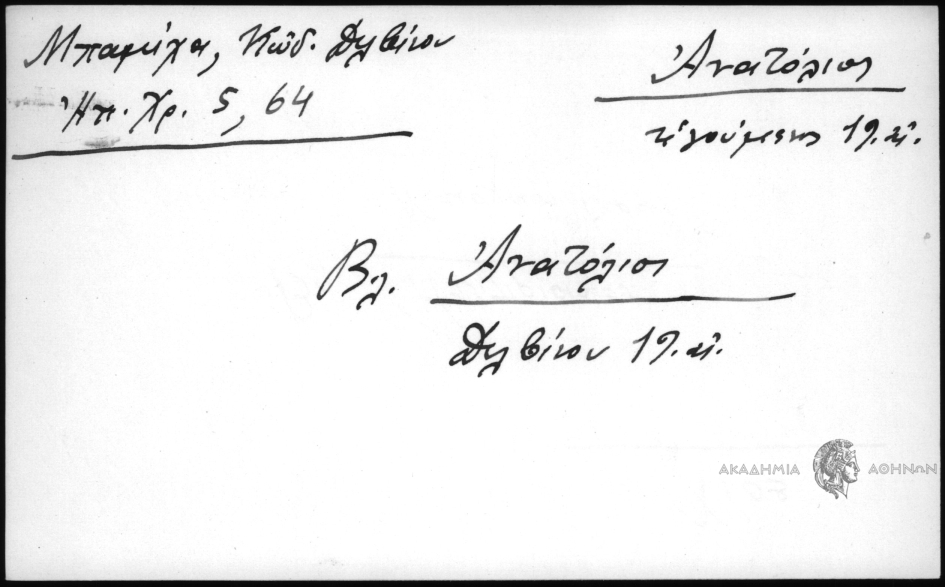 Μπαμίχα, Κώδ. Δελβίνου
Ἠπ. Χρ. 5, 64
Ἀνατόλιος
ἡγούμενος 19. αἰ.
Βλ. Ἀνατόλιος
Δελβίνου 19. αἰ.
ΑΚΑΔΗΜΙΑ ΑΘΗΝΩΝ